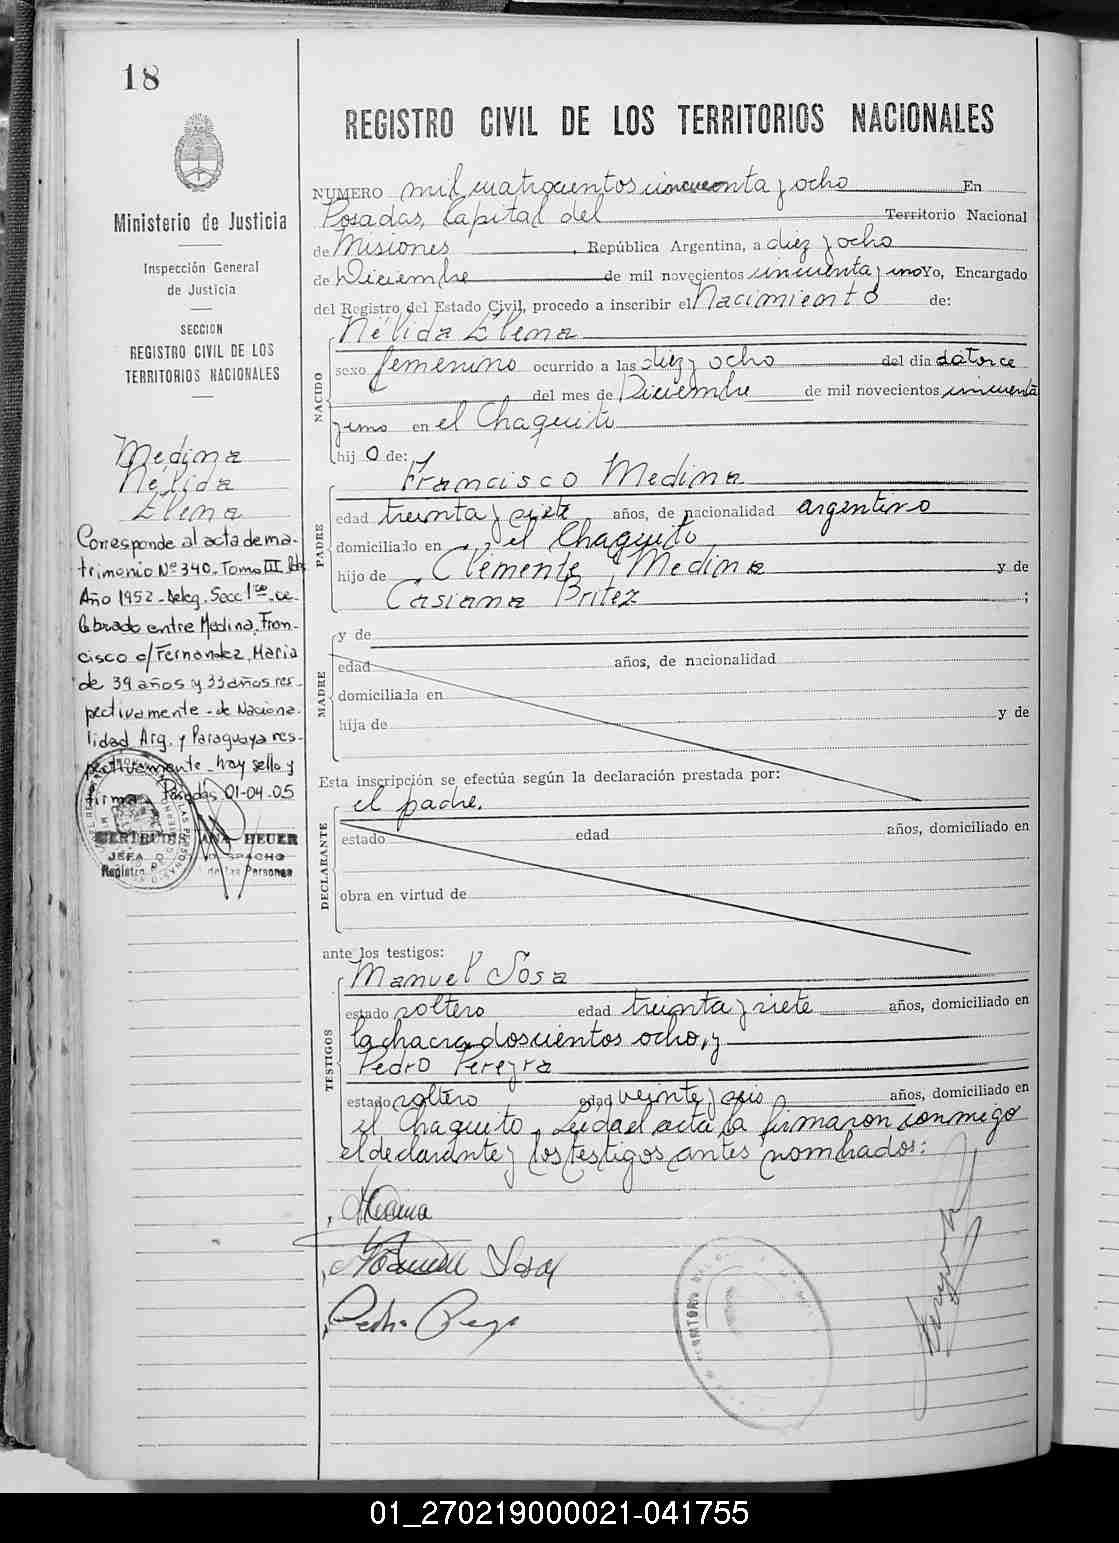 18
REGISTRO CIVIL DE LOS TERRITORIOS NACIONALES
Ministerio de Justicia
Inspección General
de Justicia
SECCION
REGISTRO CIVIL DE LOS
TERRITORIOS NACIONALES
Medina
Nélida
Elena
Corresponde al acta de ma-
trimonio Nº 340. Tomo III
Año 1952 - Deleg. Secc 1ra - ce-
lebrado entre Medina, Fran-
cisco c/ Fernandez, Maria
de 39 años y 33 años res-
pectivamente - de Naciona-
lidad Arg. y Paraguaya res-
pectivamente - hay sello y
firma - Posadas 01-04-05
HEUER
JEFA DESPACHO
Registro de las Personas
NUMERO mil cuatrocientos cincuenta y ocho En
Posadas, Capital del Territorio Nacional
de Misiones, República Argentina, a diez y ocho
de Diciembre de mil novecientos cincuenta y uno Yo, Encargado
del Registro del Estado Civil, procedo a inscribir el Nacimiento de:
NACIDO
Nélida Elena
sexo femenino ocurrido a las diez y ocho del día catorce
del mes de Diciembre de mil novecientos cincuenta
y uno en el Chaquito
hij o de:
PADRE
Francisco Medina
edad treinta y siete años, de nacionalidad argentino
domiciliado en el Chaquito
hijo de Clemente Medina y de
Casiana Britez ;
MADRE
y de
edad años, de nacionalidad
domiciliada en
hija de y de
Esta inscripción se efectúa según la declaración prestada por:
DECLARANTE
el padre.
estado edad años, domiciliado en
obra en virtud de
ante los testigos:
TESTIGOS
Manuel Sosa
estado soltero edad treinta y siete años, domiciliado en
la chacra doscientos ocho, y
Pedro Pereyra
estado soltero edad veinte y seis años, domiciliado en
el Chaquito. Leida el acta la firmaron conmigo
el declarante y los testigos antes nombrados:
Medina
Manuel Sosa
Pedro
01_270219000021-041755